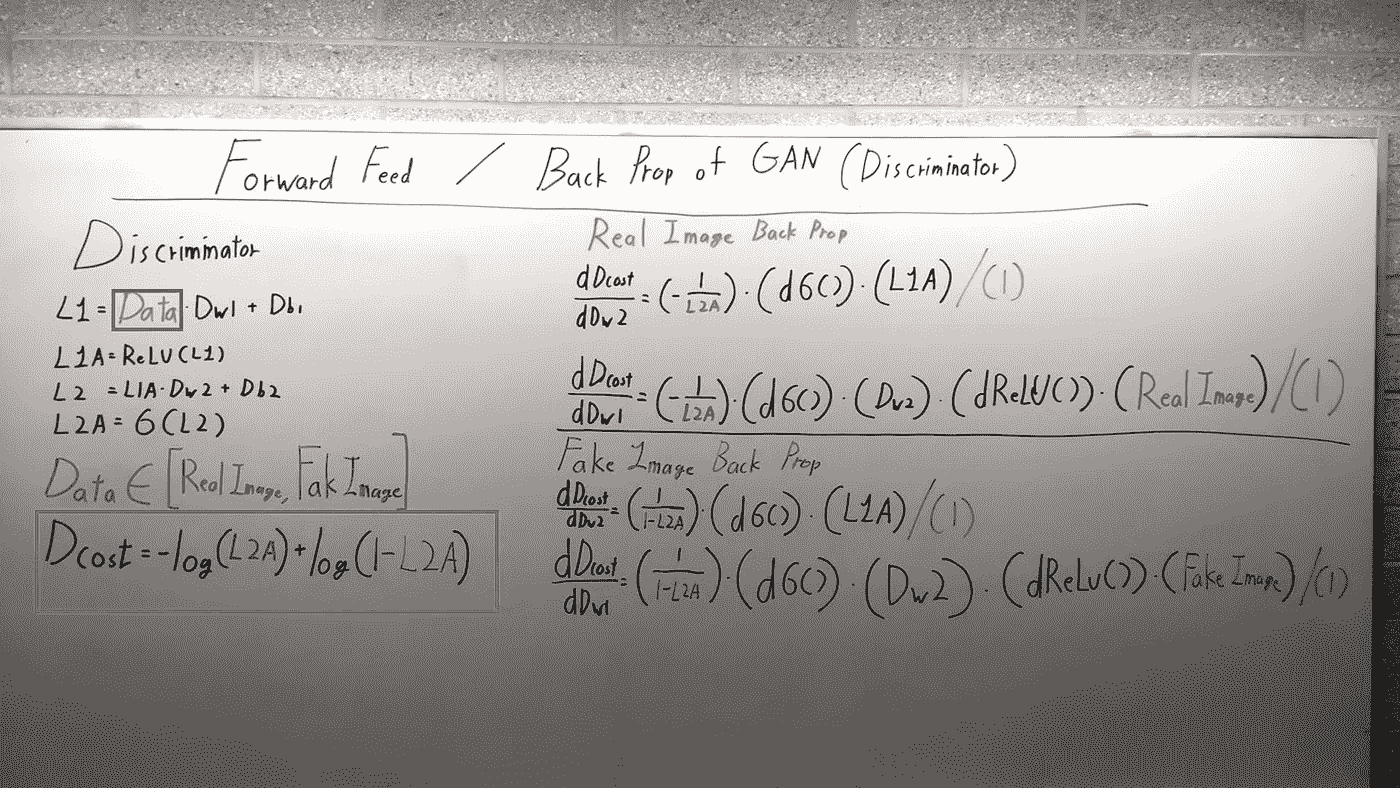 Forward Feed / Back Prop of GAN (Discriminator)
Discriminator
L1 = Data · Dw1 + Db1
L1A = ReLU(L1)
L2 = L1A · Dw2 + Db2
L2A = б(L2)
Data ∈ [Real Image, Fak Image]
Dcost = -log(L2A) + log(1-L2A)
Real Image Back Prop
dDcost/dDw2 = (-1/L2A) · (dб()) · (L1A) /(1)
dDcost/dDw1 = (-1/L2A) · (dб()) · (Dw2) · (dReLU()) · (Real Image) /(1)
Fake Image Back Prop
dDcost/dDw2 = (1/1-L2A) · (dб()) · (L1A) /(1)
dDcost/dDw1 = (1/1-L2A) · (dб()) · (Dw2) · (dReLu()) · (Fake Image) /(1)